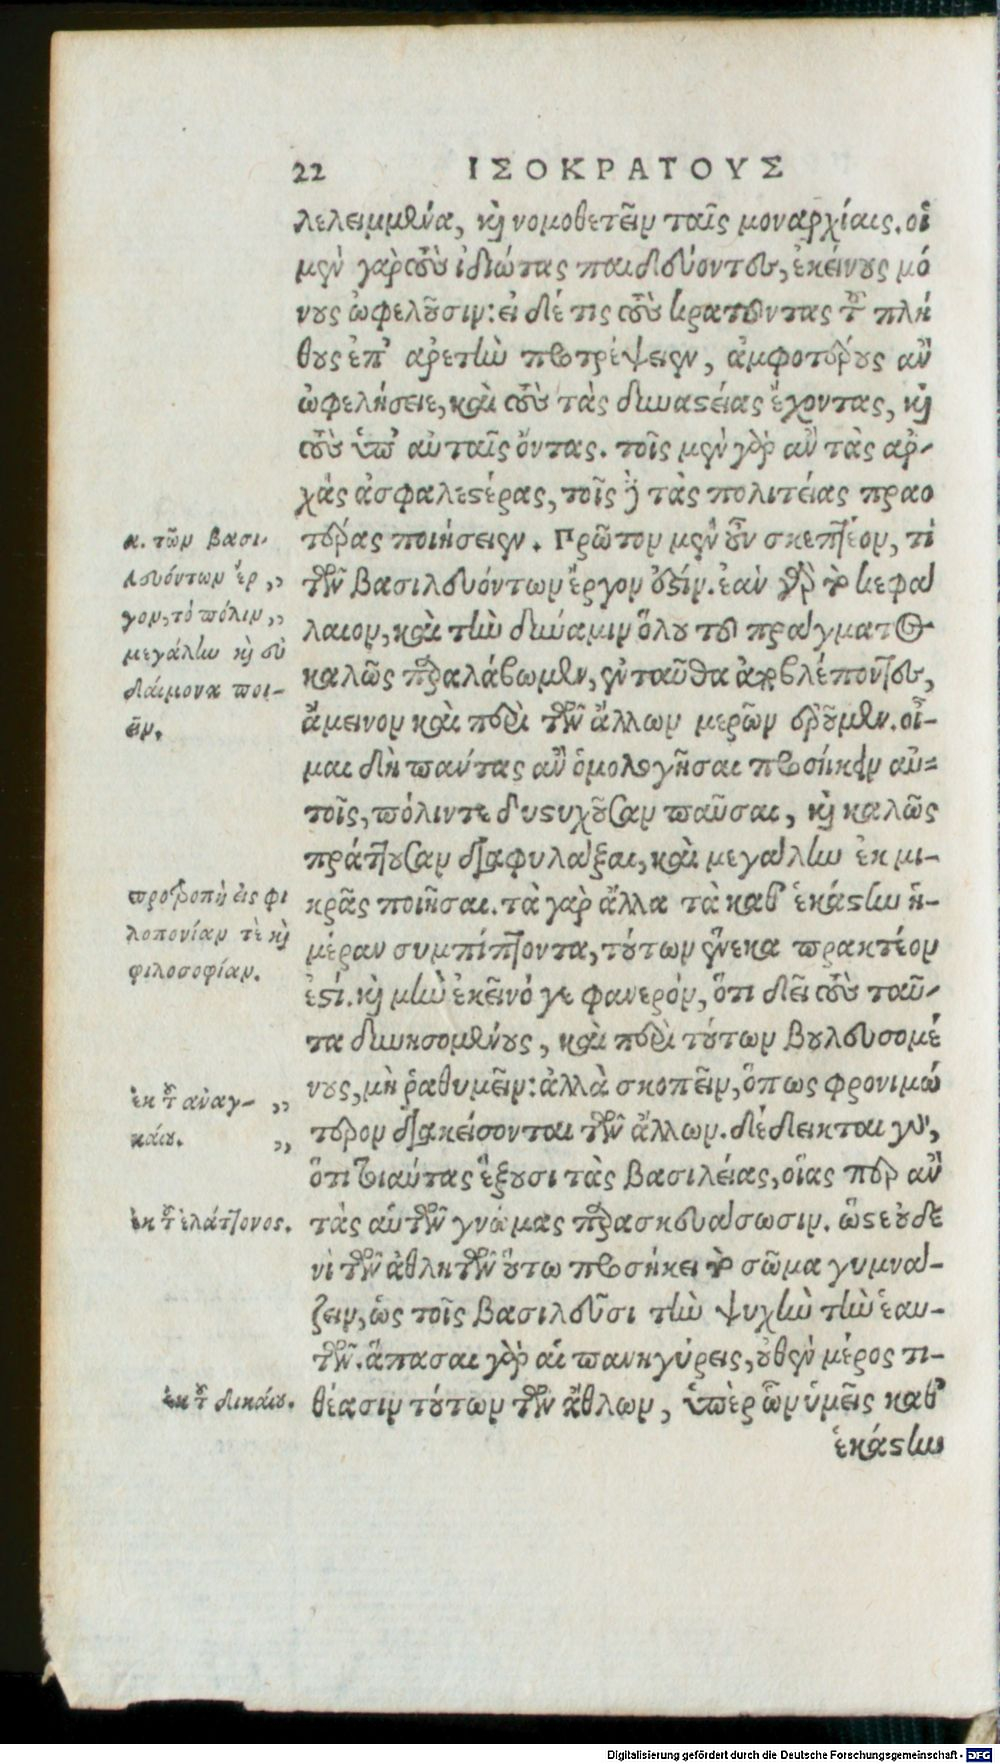 22 ΙΣΟΚΡΑΤΟΥΣ
λελειμμένα, καὶ νομοθετεῖν ταῖς μοναρχίαις. οἱ
μὲν γὰρ τοὺς ἰδιώτας παιδεύοντες, ἐκείνους μό
νους ὠφελοῦσιν: εἰ δέ τις τοὺς κρατοῦντας τοῦ πλή
θους ἐπ' ἀρετὴν προτρέψειεν, ἀμφοτέρους ἂν
ὠφελήσειε, καὶ τοὺς τὰς δυναστείας ἔχοντας, καὶ
τοὺς ὑπ' αὐταῖς ὄντας. τοῖς μὲν γὰρ ἂν τὰς ἀρ-
χὰς ἀσφαλεστέρας, τοῖς δὲ τὰς πολιτείας πραο
τέρας ποιήσειεν. Πρῶτον μὲν οὖν σκεπτέον, τί
τῶν βασιλευόντων ἔργον ἐστίν. ἐὰν γὰρ τὸ κεφά
λαιον, καὶ τὴν δύναμιν ὅλου τοῦ πράγματος
καλῶς παραλάβωμεν, ἐνταῦθα ἀποβλέποντες,
ἄμεινον καὶ περὶ τῶν ἄλλων μερῶν ἐροῦμεν. οἶ-
μαι δὴ πάντας ἂν ὁμολογῆσαι προσήκειν αὐ-
τοῖς, πόλιν τε δυστυχοῦσαν παῦσαι, καὶ καλῶς
πράττουσαν διαφυλάξαι, καὶ μεγάλην ἐκ μι-
κρᾶς ποιῆσαι. τὰ γὰρ ἄλλα τὰ καθ' ἑκάστην ἡ-
μέραν συμπίπτοντα, τούτων ἕνεκα πρακτέον
ἐστί. καὶ μὴν ἐκεῖνό γε φανερόν, ὅτι δεῖ τοὺς ταῦ-
τα δυνησομένους, καὶ περὶ τούτων βουλευσομέ
νους, μὴ ῥαθυμεῖν: ἀλλὰ σκοπεῖν, ὅπως φρονιμώ
τερον διακείσονται τῶν ἄλλων. δέδεικται γὰρ,
ὅτι τοιαύτας ἕξουσι τὰς βασιλείας, οἵας περ ἂν
τὰς αὑτῶν γνώμας παρασκευάσωσιν. ὥστε οὐδε
νὶ τῶν ἀθλητῶν οὕτω προσήκει τὸ σῶμα γυμνά-
ζειν, ὡς τοῖς βασιλεῦσι τὴν ψυχὴν τὴν ἑαυ-
τῶν. ἅπασαι γὰρ αἱ πανηγύρεις, οὐθὲν μέρος τι-
θέασιν τούτων τῶν ἄθλων, ὑπὲρ ὧν ὑμεῖς καθ'
ἑκάστην
α. τῶν βασι-
λευόντων ἔρ ,,
γον, τὸ πόλιν ,,
μεγάλην καὶ εὐ
δαίμονα ποι-
εῖν.
προτροπὴ εἰς φι
λοπονίαν τὲ καὶ
φιλοσοφίαν.
ἐκ τοῦ ἀναγ- ,,
καίου. ,,
ἐκ τοῦ ἐλάττονος.
ἐκ τοῦ δικαίου.
Digitalisierung gefördert durch die Deutsche Forschungsgemeinschaft - DFG